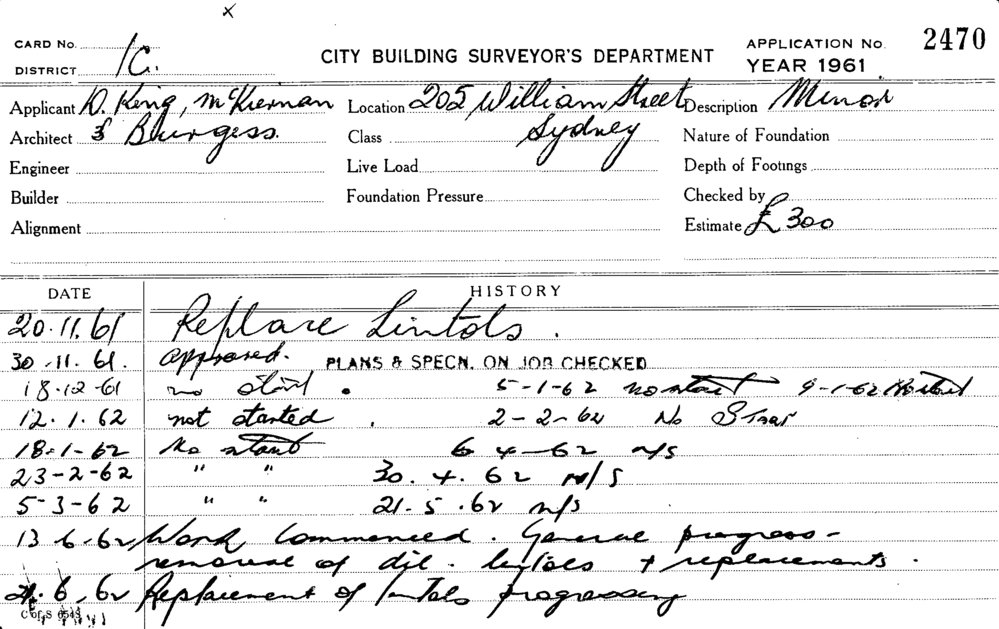 x
CARD No.
DISTRICT 1C.
CITY BUILDING SURVEYOR'S DEPARTMENT
APPLICATION No. 2470
YEAR 1961
Applicant D. King, McKiernan Location 205 William Street Description Minor
Architect & Burgess. Class Sydney Nature of Foundation
Engineer Live Load Depth of Footings
Builder Foundation Pressure Checked by
Alignment Estimate £300
DATE HISTORY
20.11.61 Replace Lintols.
30.11.61. approved. PLANS & SPECN. ON JOB CHECKED
18-12-61 no start. 5-1-62 no start 9-1-62 No start
12.1.62 not started. 2-2-62 No Start
18-1-62 No start 6 4-62 n/s
23-2-62 " " 30.4.62 n/s
5-3-62 " " 21-5.62 n/s
13-6-62 Work Commenced. General progress-
removal of djl. lintols + replacements.
6.62 Replacement of lintols progressing
C of S